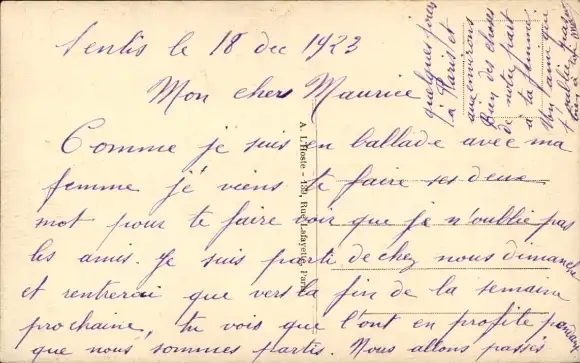 Senlis le 18 dec 1923
Mon chers Maurice
Comme je suis en ballade avec ma
femme je viens te faire ses deux
mot pour te faire voir que je n'oublie pas
les amis. Je suis parti de chez nous dimanche
et rentrerai que vers la fin de la semaine
prochaine, tu vois que l'ont en profite pendant
que nous sommes partis. Nous allons passés
quelques jours
à Paris et
aux environs
Bien des choses
de notre part
a ta femme.
Un ami qui
t'oublie pas
A. L'Hoste - 139, Rue Lafayette, Paris